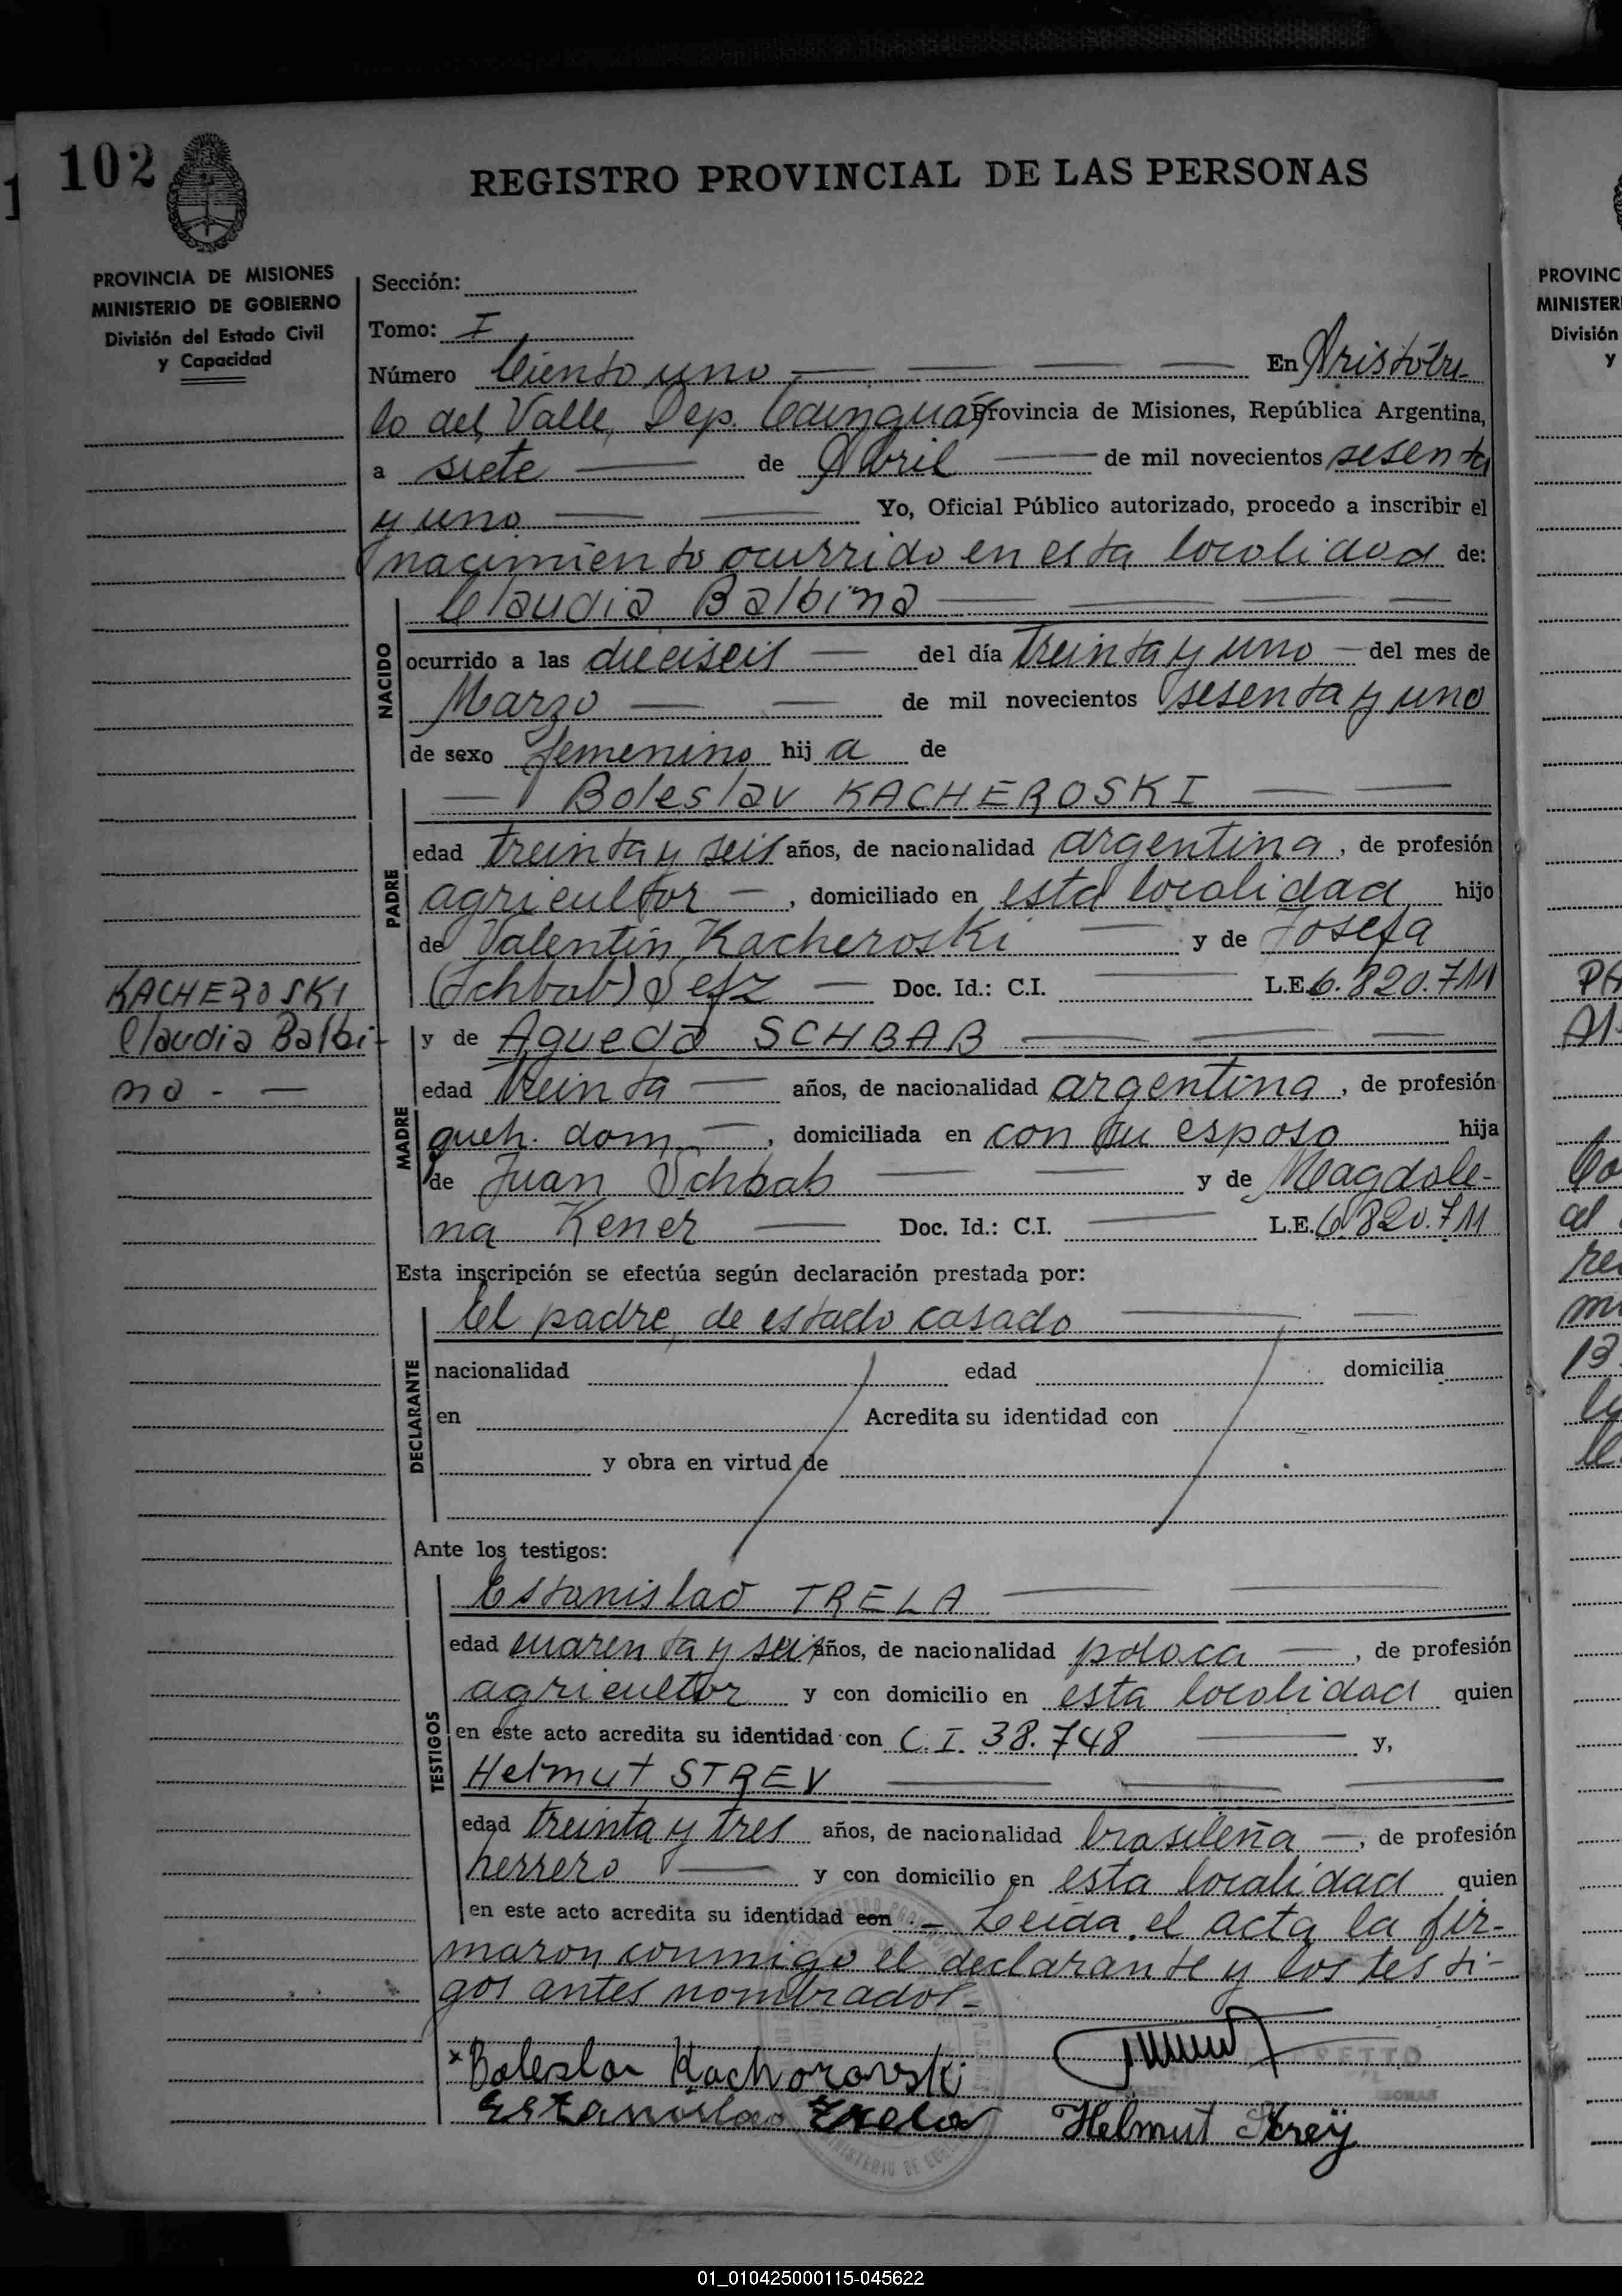 102
REGISTRO PROVINCIAL DE LAS PERSONAS
PROVINCIA DE MISIONES
MINISTERIO DE GOBIERNO
División del Estado Civil
y Capacidad
Sección:
Tomo: I
Número Ciento uno — — — — En Aristóbu-
lo del Valle, Dep. Cainguás Provincia de Misiones, República Argentina,
a siete — de Abril — de mil novecientos sesenta
y uno — — Yo, Oficial Público autorizado, procedo a inscribir el
nacimiento ocurrido en esta localidad de:
NACIDO
Claudia Balbina — — — —
ocurrido a las dieciseis — del día treinta y uno — del mes de
Marzo — — de mil novecientos sesenta y uno
de sexo femenino hij a de
PADRE
— Boleslav KACHEROSKI — —
edad treinta y seis años, de nacionalidad argentina, de profesión
agricultor —, domiciliado en esta localidad hijo
de Valentin Kacheroski — y de Josefa
(Schbab) Sefz — Doc. Id.: C.I. — L.E. 6.820.711
KACHEROSKI
Claudia Balbi-
na - —
MADRE
y de Agueda SCHBAB — — —
edad treinta — años, de nacionalidad argentina, de profesión
queh. dom. —, domiciliada en con su esposo hija
de Juan Schbab — — y de Magdale-
na Kener — Doc. Id.: C.I. — L.E. 6.820.711
Esta inscripción se efectúa según declaración prestada por:
DECLARANTE
el padre, de estado casado — —
nacionalidad edad domicilia
en Acredita su identidad con
y obra en virtud de
Ante los testigos:
TESTIGOS
Estanislao TRELA — —
edad cuarenta y seis años, de nacionalidad polaca —, de profesión
agricultor y con domicilio en esta localidad quien
en este acto acredita su identidad con C.I. 38.748 — y,
Helmut STREY — — —
edad treinta y tres años, de nacionalidad brasileña —, de profesión
herrero — y con domicilio en esta localidad quien
en este acto acredita su identidad con .- Leída el acta la fir-
maron conmigo el declarante y los testi-
gos antes nombrados.-
x Boleslao Kachorovski
Estanislao Trela Helmut Strey
PROVINC
MINISTER
División
y
01_010425000115-045622